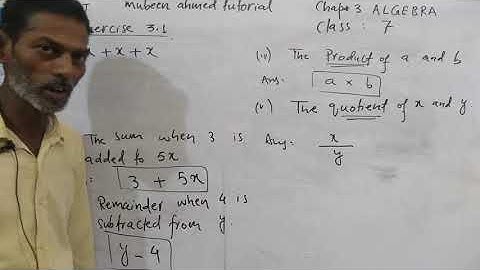 mubeen ahmed tutorial
Chap: 3 ALGEBRA
Class : 7
Exercise 3.1
+ x + x
The sum when 3 is
added to 5x
3 + 5x
Remainder when 4 is
subtracted from y.
y - 4
(iv) The Product of a and b
Ans: a × b
(v) The quotient of x and y
Ans: x
y